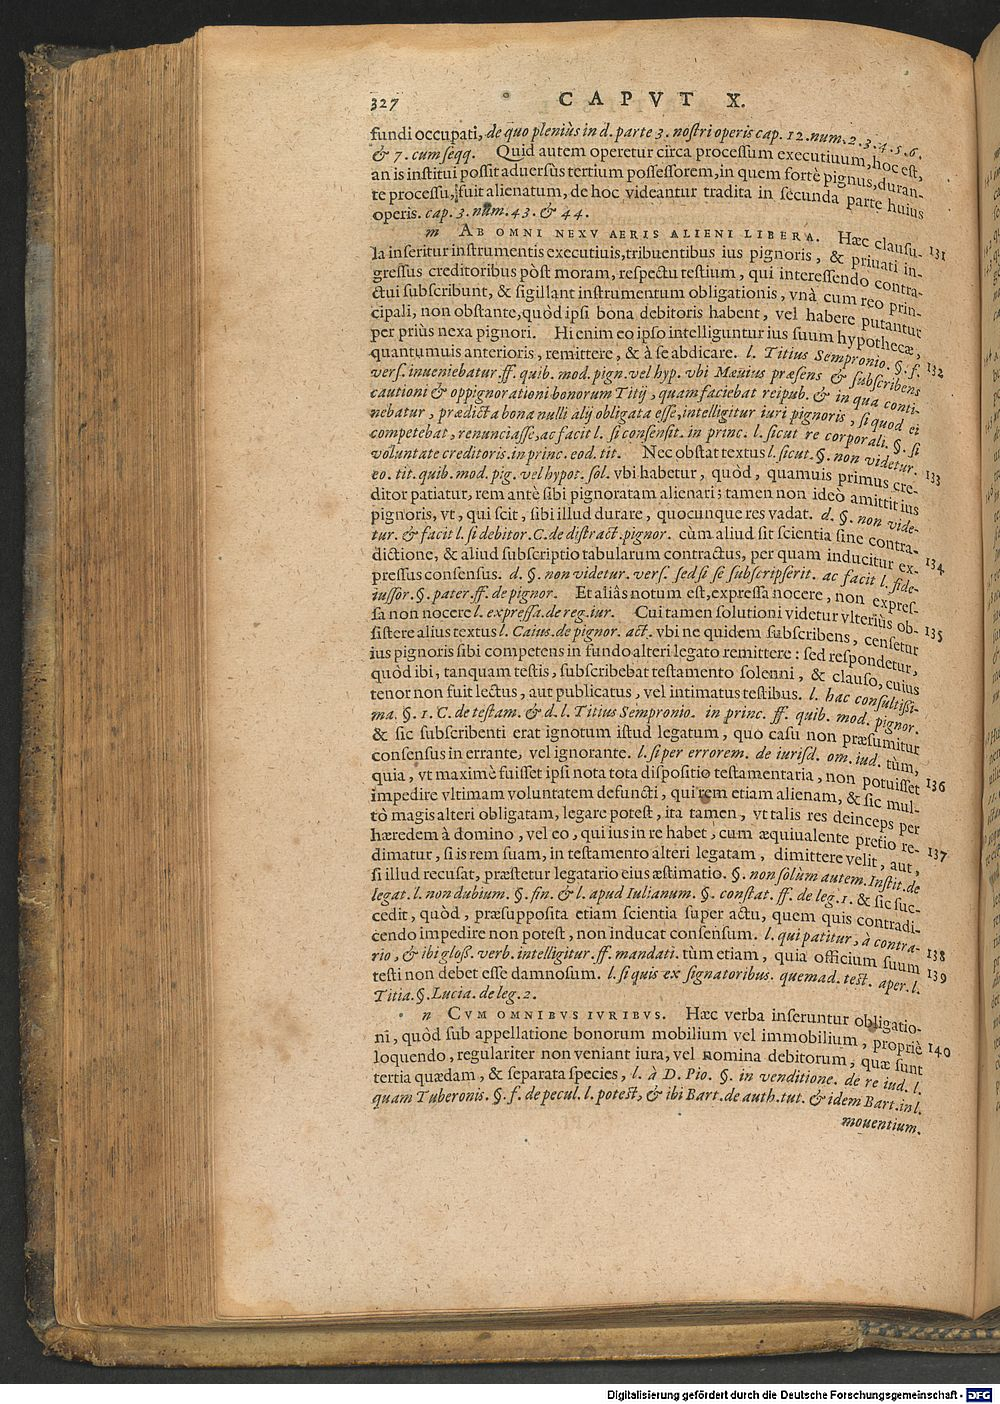 327 CAPVT X.
fundi occupati, de quo pleniùs in d. parte 3. nostri operis cap. 12. num. 2. 3. 4. 5. 6.
& 7. cum seqq. Quid autem operetur circa processum executiuum, hoc est,
an is institui possit aduersùs tertium possessorem, in quem fortè pignus, duran-
te processu, fuit alienatum, de hoc videantur tradita in secunda parte huius
operis. cap. 3. num. 43. & 44.
m AB OMNI NEXV AERIS ALIENI LIBERA. Hæc clausu- 131
la inseritur instrumentis executiuis, tribuentibus ius pignoris, & priuati in-
gressus creditoribus pòst moram, respectu testium, qui interessendo contra-
ctui subscribunt, & sigillant instrumentum obligationis, vnà cum reo prin-
cipali, non obstante, quòd ipsi bona debitoris habent, vel habere putantur
per priùs nexa pignori. Hi enim eo ipso intelliguntur ius suum hypothecæ,
quantumuis anterioris, remittere, & à se abdicare. l. Titius Sempronio. §. f. 132
vers. inueniebatur. ff. quib. mod. pign. vel hyp. vbi Mæuius præsens & subscribens
cautioni & oppignorationi bonorum Titij, quam faciebat reipub. & in qua conti-
nebatur, prædicta bona nulli alij obligata esse, intelligitur iuri pignoris, si quod ei
competebat, renunciasse, ac facit l. si consensit. in princ. l. sicut re corporali. §. si
voluntate creditoris. in princ. eod. tit. Nec obstat textus l. sicut. §. non videtur.
eo. tit. quib. mod. pig. vel hypot. sol. vbi habetur, quòd, quamuis primus cre- 133
ditor patiatur, rem antè sibi pignoratam alienari; tamen non ideò amittit ius
pignoris, vt, qui scit, sibi illud durare, quocunque res vadat. d. §. non vide-
tur. & facit l. si debitor. C. de distract. pignor. cùm aliud sit scientia sine contra-
dictione, & aliud subscriptio tabularum contractus, per quam inducitur ex- 134
pressus consensus. d. §. non videtur. vers. sed si se subscripserit. ac facit l. fide-
iussor. §. pater. ff. de pignor. Et aliàs notum est, expressa nocere, non expres-
sa non nocere l. expressa. de reg. iur. Cui tamen solutioni videtur vlteriùs ob- 135
sistere alius textus l. Caius. de pignor. act. vbi ne quidem subscribens, censetur
ius pignoris sibi competens in fundo alteri legato remittere: sed respondetur,
quòd ibi, tanquam testis, subscribebat testamento solenni, & clauso, cuius
tenor non fuit lectus, aut publicatus, vel intimatus testibus. l. hac consultißi-
ma. §. 1. C. de testam. & d. l. Titius Sempronio. in princ. ff. quib. mod. pignor.
& sic subscribenti erat ignotum istud legatum, quo casu non præsumitur
consensus in errante, vel ignorante. l. si per errorem. de iurisd. om. iud. tùm,
quia, vt maximè fuisset ipsi nota tota dispositio testamentaria, non potuisset 136
impedire vltimam voluntatem defuncti, qui rem etiam alienam, & sic mul-
tò magis alteri obligatam, legare potest, ita tamen, vt talis res deinceps per
hæredem à domino, vel eo, qui ius in re habet, cum æquiualente pretio re- 137
dimatur, si is rem suam, in testamento alteri legatam, dimittere velit, aut,
si illud recusat, præstetur legatario eius æstimatio. §. non solùm autem. Instit. de
legat. l. non dubium. §. fin. & l. apud Iulianum. §. constat. ff. de leg. 1. & sic suc-
cedit, quòd, præsupposita etiam scientia super actu, quem quis contradi-
cendo impedire non potest, non inducat consensum. l. qui patitur, à contra- 138
rio, & ibi gloß. verb. intelligitur. ff. mandati. tùm etiam, quia officium suum 139
testi non debet esse damnosum. l. si quis ex signatoribus. quemad. test. aper. l.
Titia. §. Lucia. de leg. 2.
n CVM OMNIBVS IVRIBVS. Hæc verba inseruntur obligatio-
ni, quòd sub appellatione bonorum mobilium vel immobilium, propriè 140
loquendo, regulariter non veniant iura, vel nomina debitorum, quæ sunt
tertia quædam, & separata species, l. à D. Pio. §. in venditione. de re iud. l.
quam Tuberonis. §. f. de pecul. l. potest, & ibi Bart. de auth. tut. & idem Bart. in l.
mouentium.
Digitalisierung gefördert durch die Deutsche Forschungsgemeinschaft - DFG